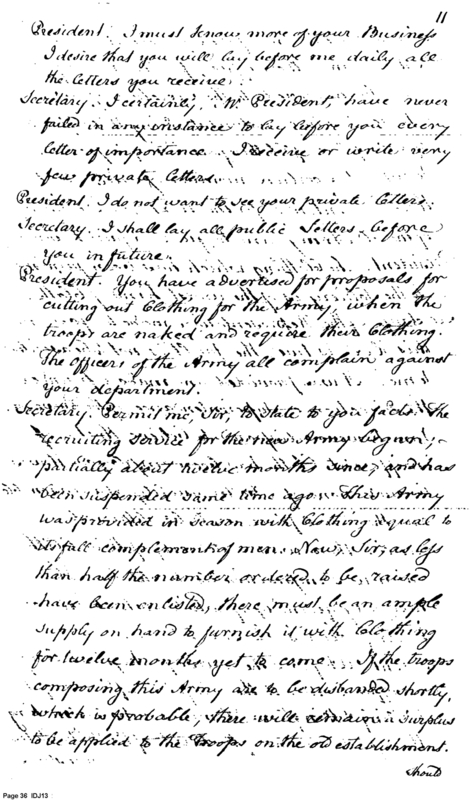 11
President. I must know more of your Business
I desire that you will lay before me daily all
the letters you receive.
Secretary. I certainly, Mr President, have never
failed in any instance to lay before you every
letter of importance. I receive or write very
few private letters.
President. I do not want to see your private letters.
Secretary. I shall lay all public Letters before
you in future.
President. You have advertised for proposals for
cutting out Clothing for the Army, when the
troops are naked and require their Clothing.
The officers of the Army all complain against
your department.
Secretary. Permit me, Sir, to state to you facts. The
recruiting service for the new Army begun,
partially about twelve months since, and has
been suspended some time ago. This Army
was provided in season with Clothing equal to
its full complement of men. Now, Sir, as less
than half the number ordered to be raised
have been enlisted, there must be an ample
supply on hand to furnish it with Clothing
for twelve months yet to come. If the troops
composing this Army are to be disbanded shortly,
which is probable, there will remain a surplus
to be applied to the Troops on the old establishment.
Should
Page 36 IDJ13